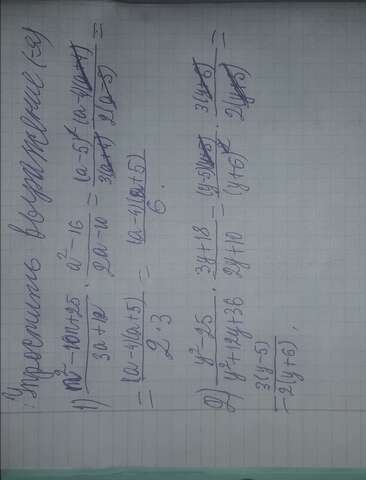 Упростить выражение (-я)
1) (a² - 10a + 25)/(3a + 12) : (a² - 16)/(2a - 10) = (a - 5)² (a - 4)(a + 4)/3(a + 4) 2(a - 5) =
= (a - 4)(a + 5)/2 · 3 = (a - 4)(a + 5)/6.
2) (y² - 25)/(y² + 12y + 36) · (3y + 18)/(2y + 10) = (y - 5)(y + 5)/(y + 6)² · 3(y + 6)/2(y + 5) =
= 3(y - 5)/2(y + 6).